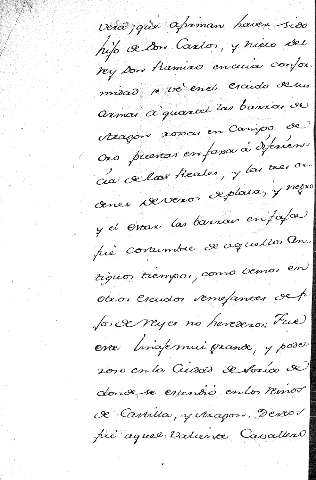 vera, que afirman haver sido
hijo de Don Carlos, y nieto del
Rey Don Ramiro en cuia confor
midad se ve en el escudo de sus
Armas á quartel las barras de
Aragon roxas en campo de
Oro puestas en faxa á diferien
cia de las Reales, y las tres or
denes de veros de plata, y negro
y el estar las barras en faxa
fué costumbre de aquellos An
tiguos tiempos, como vemos en
otros escudos semejantes de hi
jos de Reyes no herederos; Fue
este linaje mui grande, y pode
roso en la Ciudad de Soria de
donde se estendió en los Reinos
de Castilla, y Aragon. De
fue aquel Valiente Cavallero